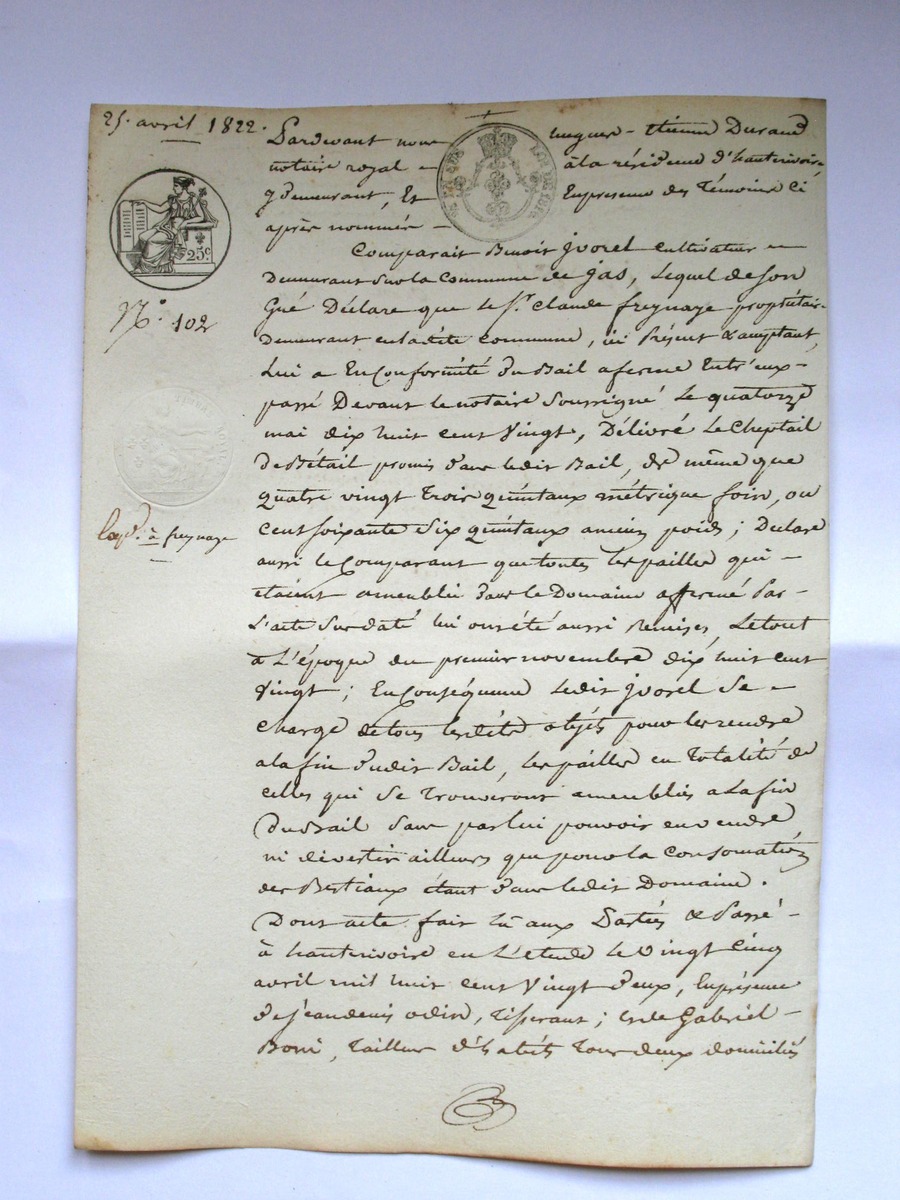 25. avril 1822.
Pardevant nous hugues-étienne Durand
notaire royal à la résidence d'hauterivoire,
y demeurant, Et En presence des Témoins ci
après nommés
Comparait Benoit jvorel cultivateur
Demeurant sur la Commune de jas, Lequel de son
Gré Déclare que le Sr. claude freynage propriétaire
Demeurant en ladite commune, ici Présent & acceptant,
Lui a En Conformité du Bail a ferme Entr'eux
passé Devant le notaire Soussigné Le quatorze
mai dix huit cent Vingt, Délivré Le Cheptail
de Bétail promis dans ledit Bail, de même que
quatre vingt Trois quintaux métrique foin, ou
cent soixante Six quintaux ancien poids ; Declare
aussi le Comparant que toutes les pailles qui
étaient ameublies dans le Domaine affermé Par
L'acte Sus daté lui ont été aussi Remises, Le tout
à L'époque du premier novembre dix huit cent
Vingt ; En Conséquence Ledit jvorel Se
charge de tous lesdits objets pour les rendre
a la fin dudit Bail, les pailles en Totalité de
celles qui Se Trouveront ameublies a La fin
Du Bail Sans par lui pouvoir en vendre
ni divertir ailleurs que pour la Consomation
des Bestiaux étant dans ledit Domaine.
Dont acte fait lû aux Parties & Passé
à hauterivoire en L'etude Le vingt Cinq
avril mil huit cent Vingt deux, En présence
de jean denis odin, Tisserant ; et de Gabriel
Boni, Tailleur d'habits Tous deux domiciliés
25c
No. 102
à freynage